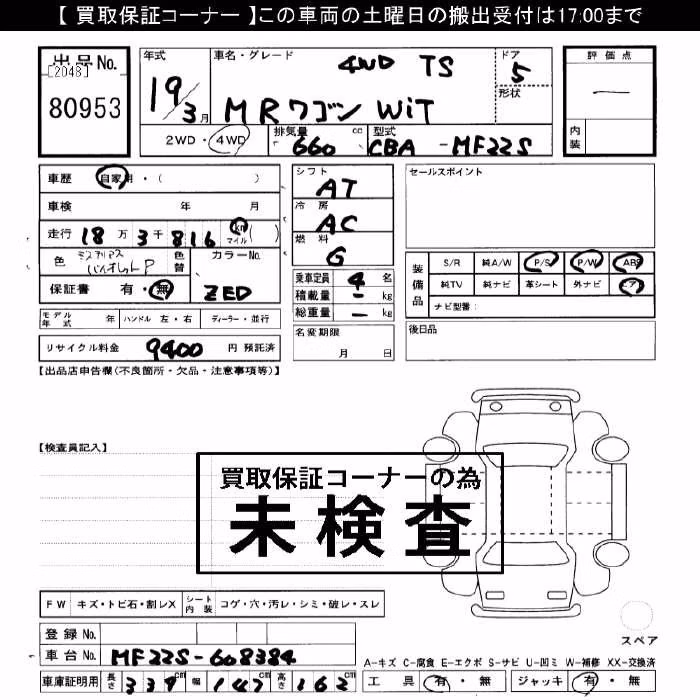 【 買取保証コーナー 】この車両の土曜日の搬出受付は17:00まで
出品No.
[2048]
80953
年式
19/3月
車名・グレード
4WD TS
MRワゴン WiT
ドア
5
形状
評価点
一
内装
2WD・4WD
排気量
660 cc
型式
CBA - MF22S
車歴 自家用・( )
車検 年 月
走行 18万3千816 km マイル ( )
色 ミステリアスバイオレットP
色替
カラーNo.
ZED
保証書 有・無
シフト
AT
冷房
AC
燃料
G
乗車定員 4 名
積載量 - kg
総重量 - kg
セールスポイント
装備品
S/R 純A/W P/S P/W ABS
純TV 純ナビ 革シート 外ナビ エアB
ナビ型番:
モデル年式 年 ハンドル 左・右 ディーラー・並行
名変期限
月 日
後日品
リサイクル料金 9400 円 預託済
【出品店申告欄(不良箇所・欠品・注意事項等)】
【検査員記入】
買取保証コーナーの為
未検査
FW キズ・トビ石・割レX シート内装 コゲ・穴・汚レ・シミ・破レ・スレ
スペア
登録No.
車台No. MF22S-608384
A-キズ C-腐食 E-エクボ S-サビ U-凹ミ W-補修 XX-交換済
車庫証明用 長さ 339 cm 幅 147 cm 高さ 162 cm
工具 有・無 ジャッキ 有・無